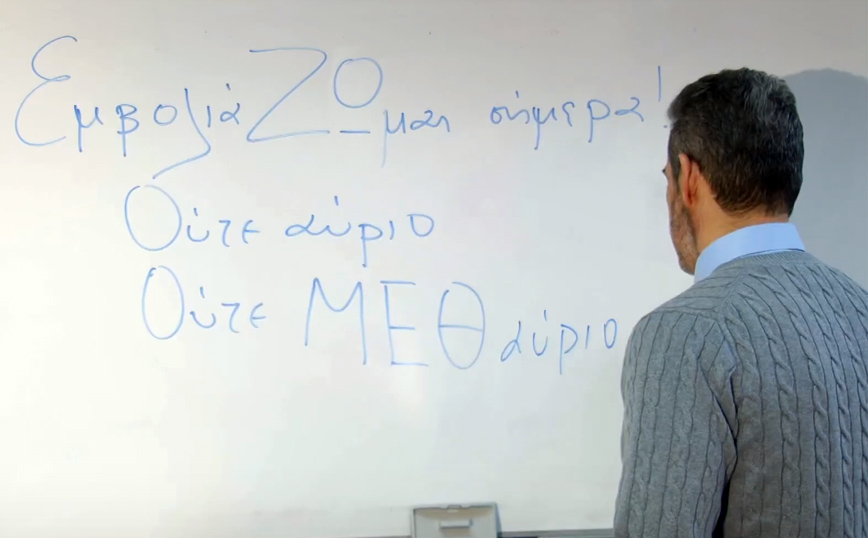 ΕμβολιάΖΩμαι σήμερα!
Ούτε αύριο
Ούτε ΜΕΘαύριο